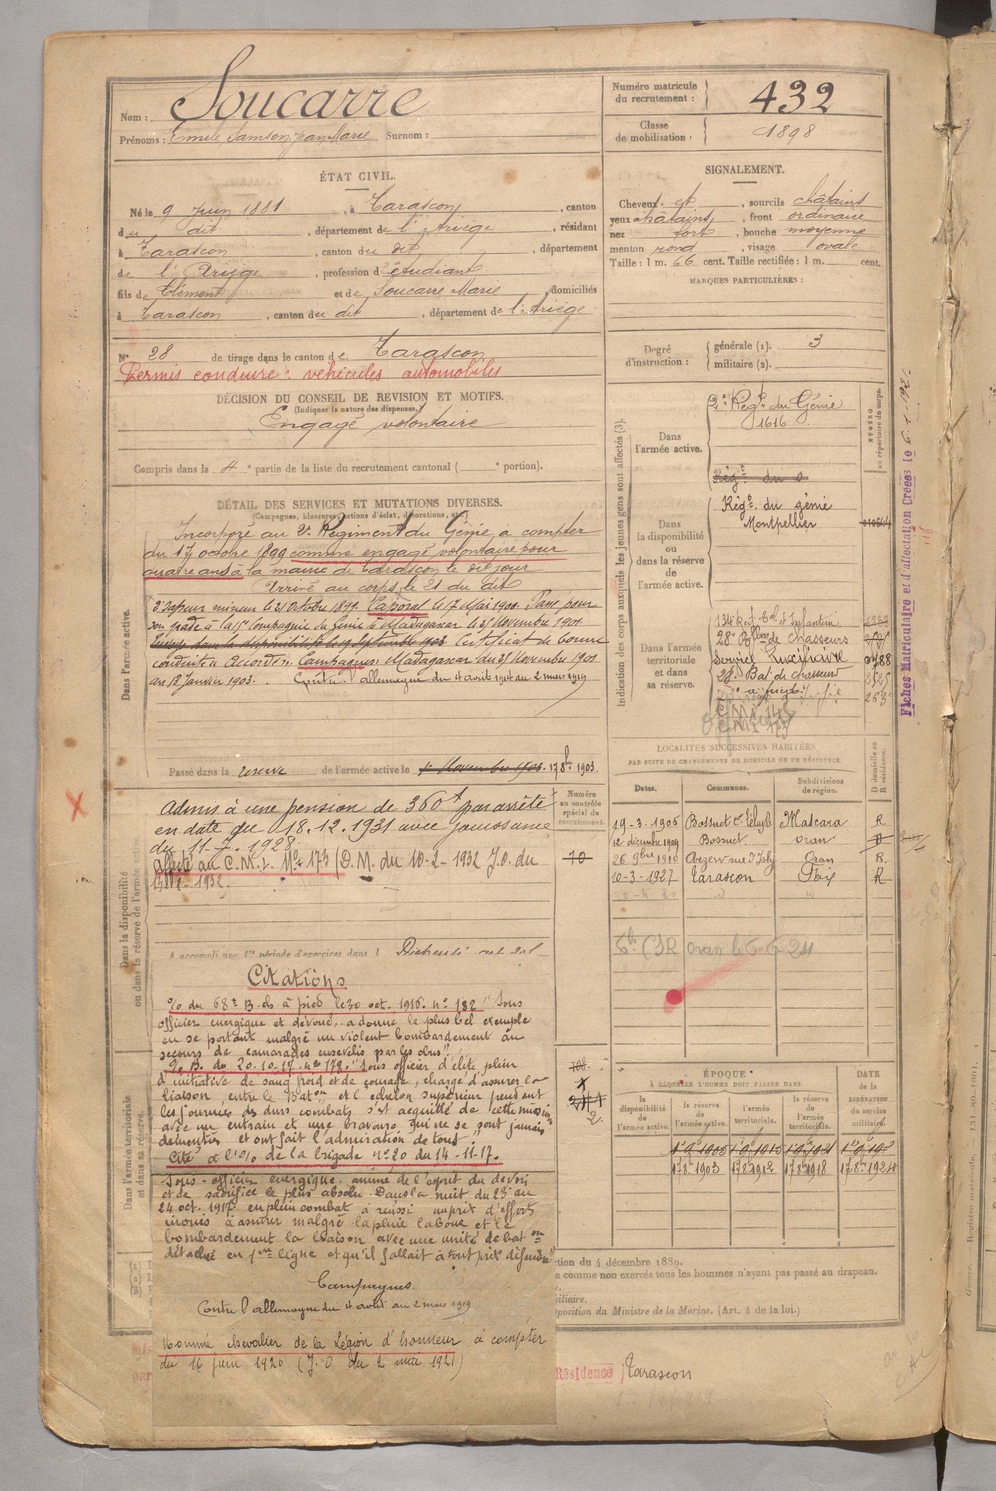 Nom : Soucarre
Prénoms : Emile Samson Jean Marie Surnom :
Numéro matricule du recrutement : 432
Classe de mobilisation : 1898
ÉTAT CIVIL.
Né le 9 Juin 1881, à Tarascon, canton
du dit, département de l'Ariège, résidant
à Tarascon, canton du dit, département
de l'Ariège, profession d'étudiant
fils de Clément et de Soucarre Marie, domiciliés
à Tarascon, canton du dit, département de l'Ariège
N° 28 de tirage dans le canton de Tarascon
Permis conduire : véhicules automobiles
DÉCISION DU CONSEIL DE REVISION ET MOTIFS.
(Indiquer la nature des dispenses.)
Engagé volontaire
Compris dans la 4e partie de la liste du recrutement cantonal ( e portion).
SIGNALEMENT.
Cheveux et, sourcils châtains
yeux châtains, front ordinaire
nez fort, bouche moyenne
menton rond, visage ovale
Taille : 1 m. 66 cent. Taille rectifiée : 1 m. cent.
MARQUES PARTICULIÈRES :
Degré d'instruction : générale (1). 3
militaire (2).
DÉTAIL DES SERVICES ET MUTATIONS DIVERSES.
(Campagnes, blessures, actions d'éclat, décorations, etc.)
Dans l'armée active.
Incorporé au 2e Régiment du Génie à compter
du 17 octobre 1899 comme engagé volontaire pour
quatre ans à la mairie de Tarascon le dit jour
Arrivé au corps le 21 du dit
2e Sapeur mineur le 21 Octobre 1899. Caporal le 17 Mai 1900. Passé pour
son grade à la Compagnie du Génie de Madagascar le 25 Novembre 1901
Certificat de bonne
conduite Accordé. Campagnes : Madagascar du 25 Novembre 1901
au 12 Janvier 1903. Contre l'allemagne du 4 août 1914 au 2 mars 1919
Passé dans la réserve de l'armée active le 1er Novembre 1903. 17 8bre 1903.
Dans la disponibilité ou dans la réserve de l'armée active
Admis à une pension de 360f par arrêté
en date du 18.12.1931 avec jouissance
du 11-7-1928
Affecté au C.M.I. N° 173 (D.M. du 10-2-1932 J.O. du
1932.
Numéro au contrôle spécial du recrutement.
10
A accompli une 1re période d'exercices dans l
Citations
% du 68e B. ds à pied le 30 oct. 1916. n° 182 "Sous
officier énergique et dévoué, a donné le plus bel exemple
en se portant malgré un violent bombardement au
secours de camarades ensevelis par les obus".
% B. du 20-10-17 n° 178. "Sous officier d'élite, plein
d'initiative de sang froid et de courage, chargé d'assurer la
liaison, entre le Baton et l'échelon supérieur pendant
les journées de durs combats s'est acquitté de cette mission
avec un entrain et une bravoure qui ne se sont jamais
démenties et ont fait l'admiration de tous".
Cité à l'% de la brigade n° 20 du 14-11-17.
Sous-officier énergique animé de l'esprit du devoir
et de sacrifice le plus absolu. Dans la nuit du 23 au
24 oct. 1917 en plein combat a réussi au prix d'efforts
inouis à assurer malgré la pluie la boue et le
bombardement la liaison avec une unité de baton
détaché en 1ère ligne et qu'il fallait à tout prix défendre"
Campagnes
Contre l'allemagne du 4 août au 2 mars 1919
Nommé chevalier de la Légion d'honneur à compter
du 16 juin 1920 (J.O. du 2 mai 1921)
Dans l'armée territoriale et dans sa réserve.
Indication des corps auxquels les jeunes gens sont affectés (3).
NUMÉRO au répertoire du corps.
Dans l'armée active.
2e Régt du Génie
1616
Dans la disponibilité ou dans la réserve de l'armée active.
Régt du génie
Montpellier
Dans l'armée territoriale et dans sa réserve.
134e Rgt Tal d'Infanterie
28e Bllon de Chasseurs
Service Auxiliaire
28e Bat de chasseurs
C M I 173
Fiches Matriculaire et d'affectation Créées le
LOCALITÉS SUCCESSIVES HABITÉES
PAR SUITE DE CHANGEMENTS DE DOMICILE OU DE RÉSIDENCE.
Dates. Communes. Subdivisions de région. D domicile ou R résidence.
19-3-1906 Bossuet Mascara R
12 décembre 1909 Bossuet Oran D
26 9bre 1910 Arzew rue d'Isly Oran R.
10-3-1927 Tarascon Foix R
Oran le 6-6-24
ÉPOQUE
À LAQUELLE L'HOMME DOIT PASSER DANS
la disponibilité de l'armée active.
la réserve de l'armée active.
l'armée territoriale.
la réserve de l'armée territoriale.
DATE de la LIBÉRATION du service militaire.
17 8bre 1903 17 8bre 1912 17 8bre 1918 17 8bre 1924
tion du 4 décembre 1889.
a comme non exercés tous les hommes n'ayant pas passé au drapeau.
xiliaire.
sposition du Ministre de la Marine. (Art. 4 de la loi.)
Résidence Tarascon